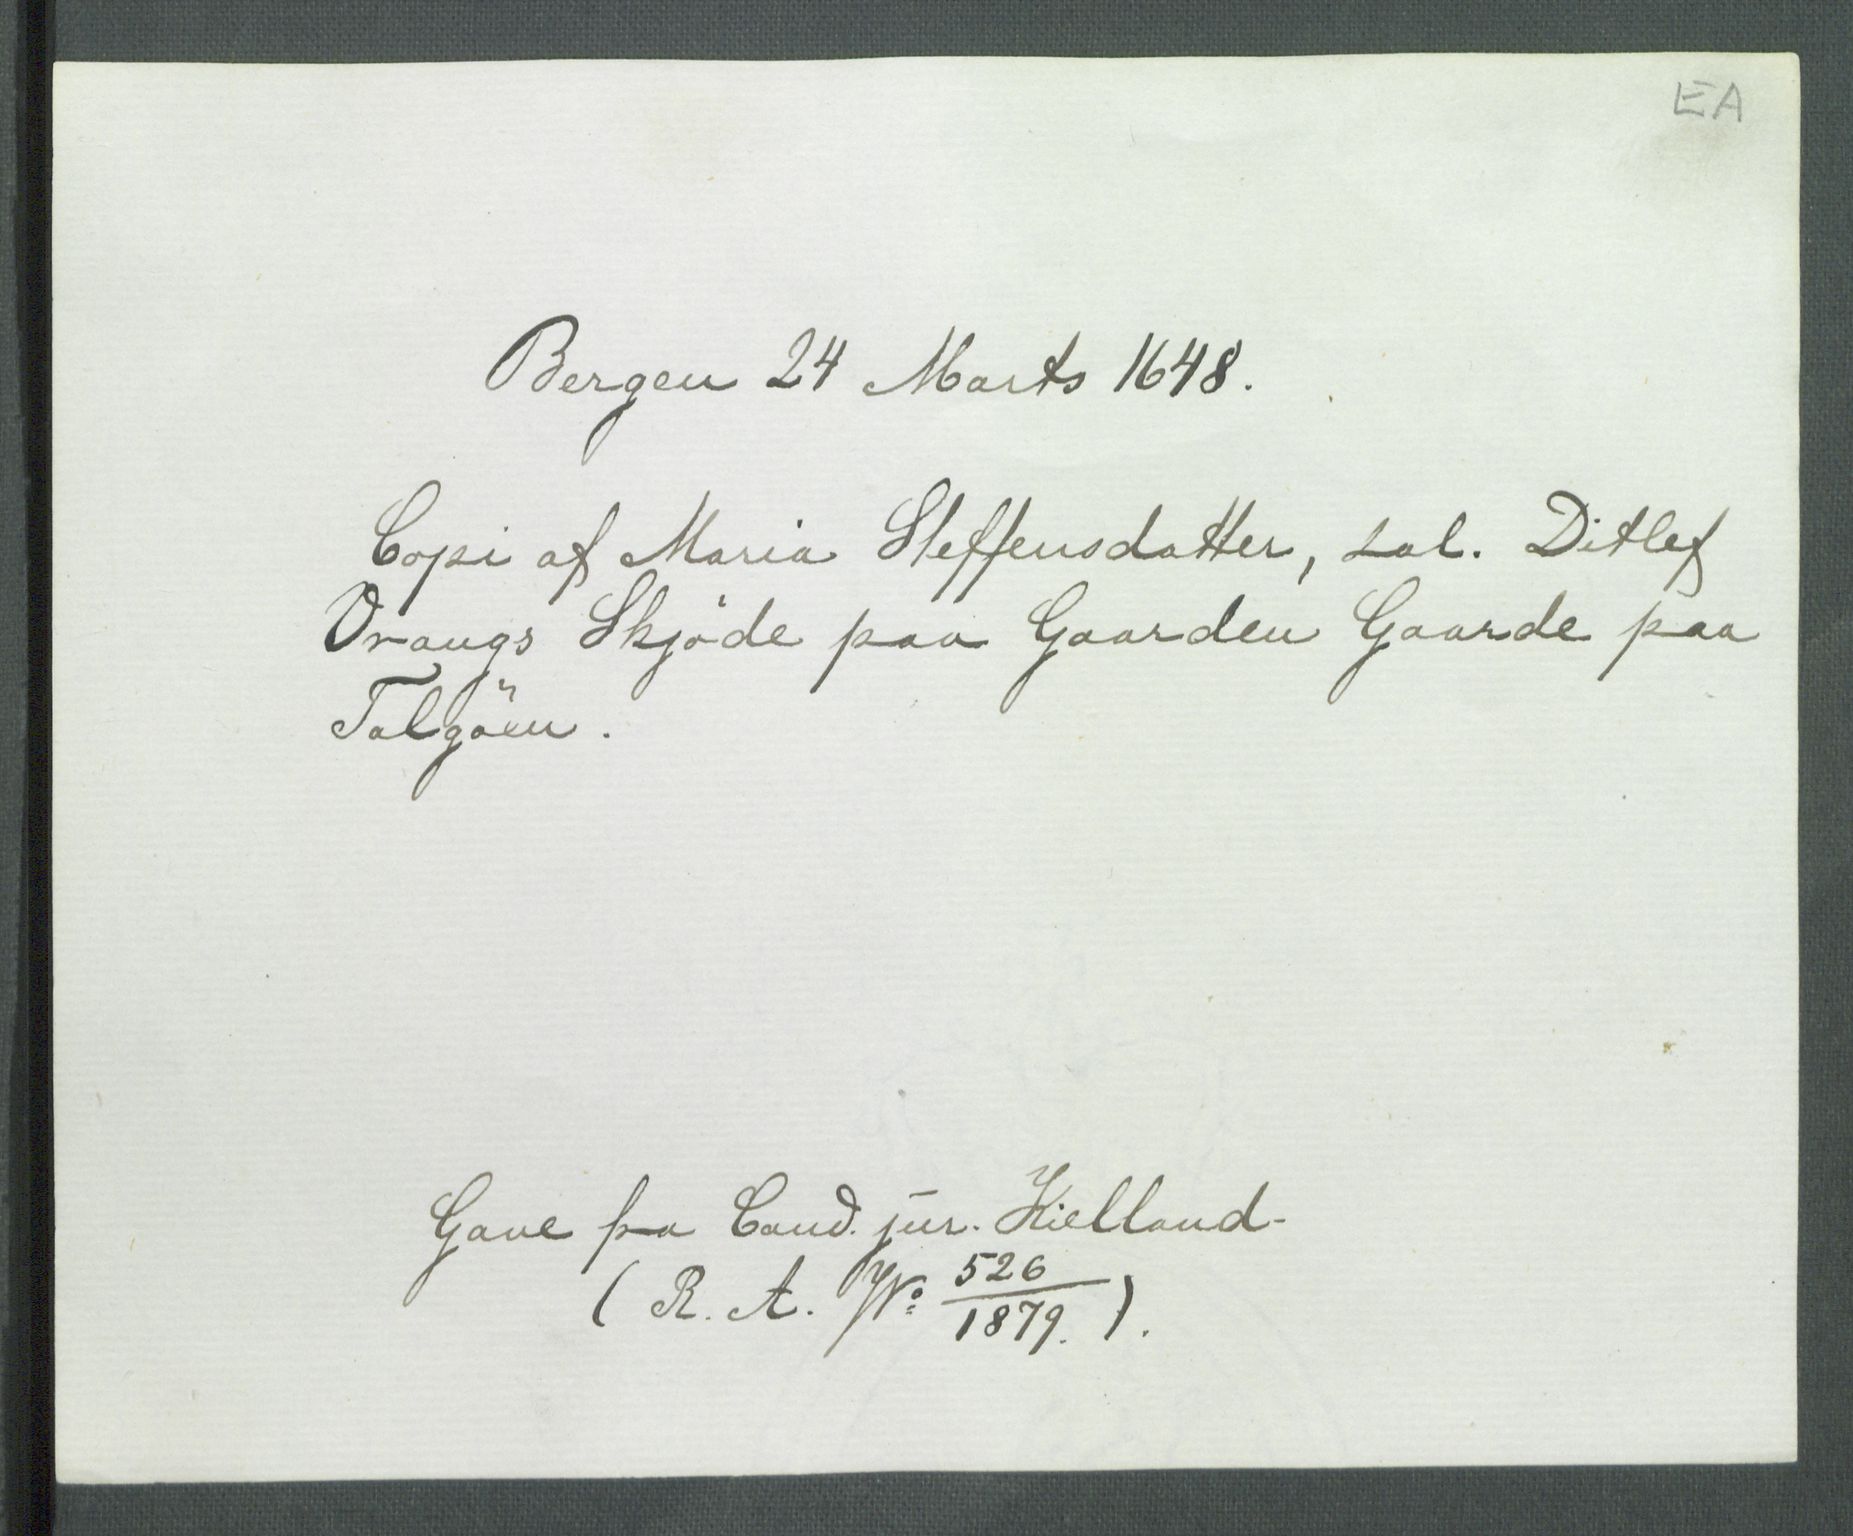 EA
Bergen 24 Marts 1648.
Copi af Maria Steffensdatter, sal. Ditlef
Vrangs Skjöde paa Gaarden Gaarde paa
Talgöen.
Gave fra Cand. jur. Kielland.
( R. A. No 526/1879. ).